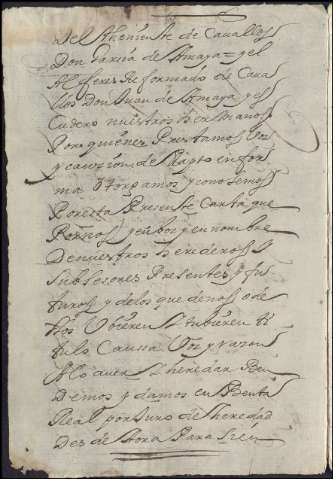 del theniente de Cavallos
Don Garcia de Amaya = y el
Alferes Reformado de Cava
llos Don Juan de Amaya y es
Cudero nuestros hermanos
Por quienes Prestamos Vos
y caucion de Rapto en for
ma otorgamos y conosemos
Por esta Presente Carta que
Por nos y en bos y en nombre
De nuestros herederos y
Subsesores Presentes y fu
turos y de los que de nos o de
ellos Ubieren titubieren ti
tulo Causa Vos y razon
A lo aver th heredar Ben
Demos y damos en Benta
Real por Juro de theredad
Des de Aora Para Siem